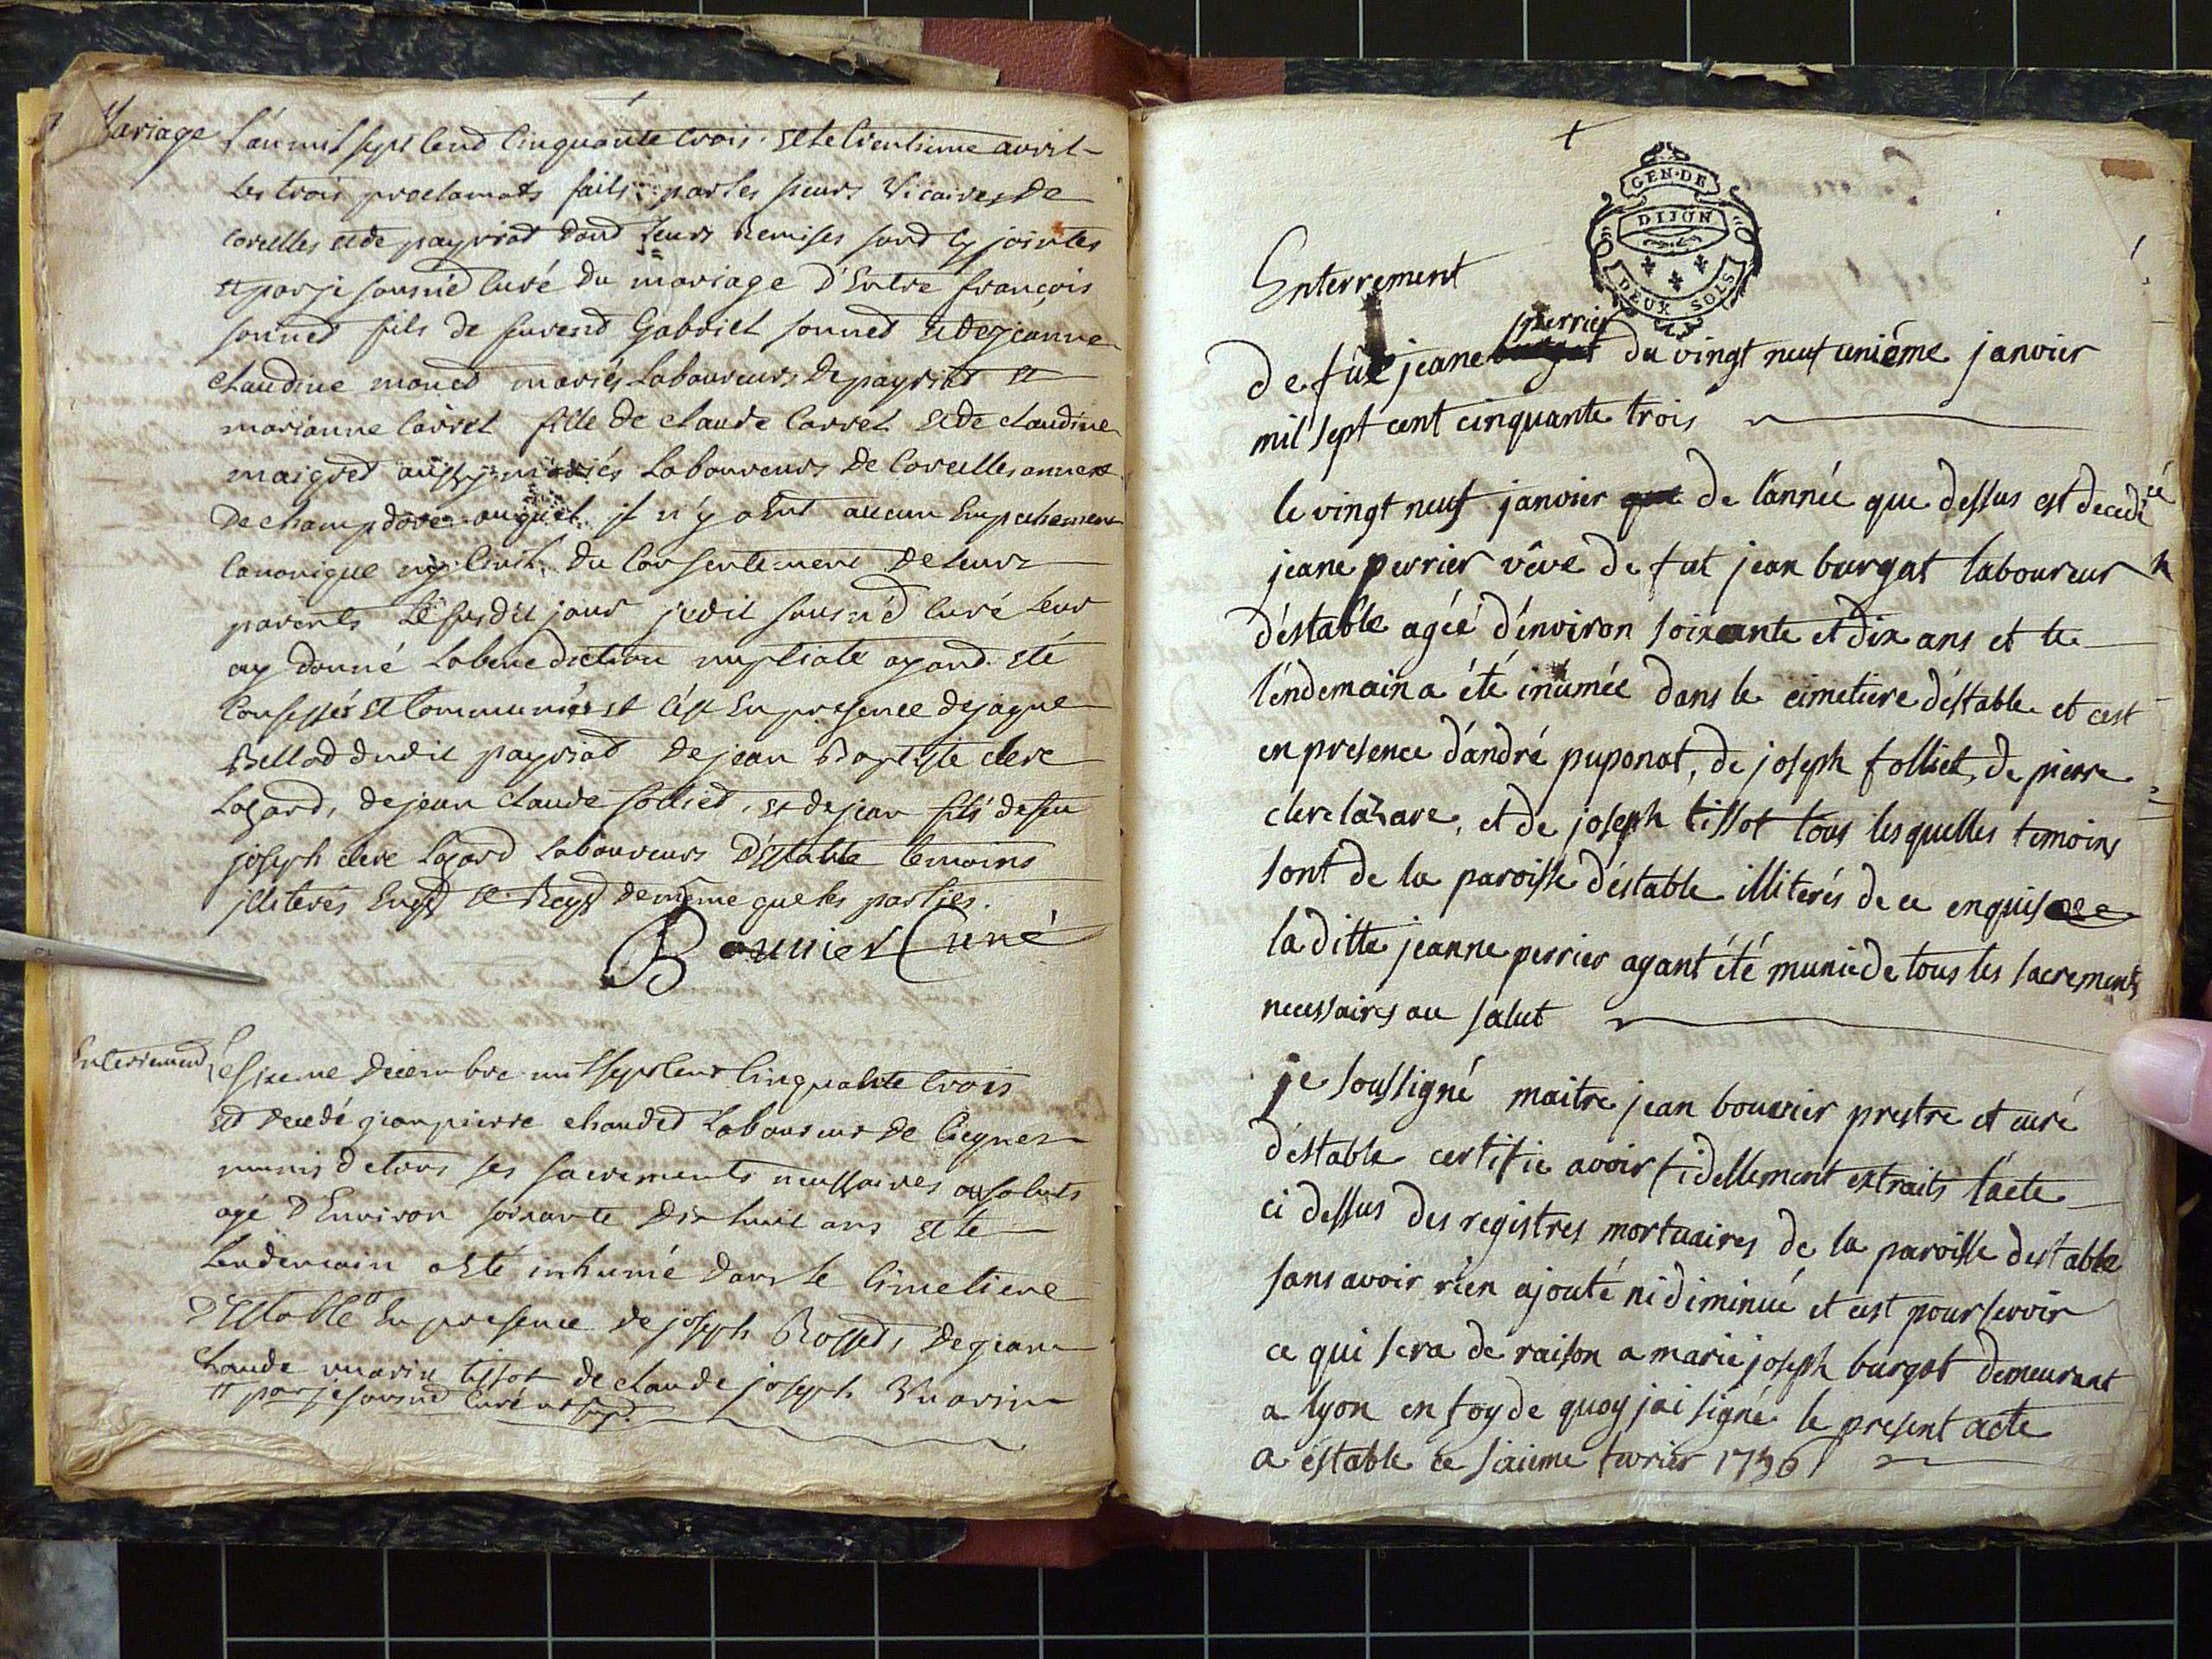 Mariage
L'an mil sept cend cinquante trois et le trentieme avril
les trois proclamats faits par les sieurs Vicaires de
Corcelles et de payriat dond leurs Remises sond cy jointes
et par je sousné Curé du mariage d'Entre françois
sonned fils de furend Gabriel sonned et de jeanne
claudine moned mariés Laboureurs de payriat et
marianne Carrel fille de claude Carrel et de claudine
maigred aussy mariés Laboureurs de Corcelles annexe
de champdore auquel il n'y a Eut aucun Empechement
Canonique ny Civil, du Consentement de Leurs
parents Le susdit jour je dit sousné Curé Leur
ay donné La benediction nuptiale ayand été
Confessés et Communiés et c'est En presence de jaque
Bellod dudit payriat de jean Baptiste clerc
Lazard, de jean claude follied, et de jean fils de feu
joseph clerc Lazard Laboureurs d'Estable temoins
illiterés Enqs et Reqs de même que les parties.
Bouvier Curé
Enterrement
Le sixeme decembre mil sept cent Cinquante trois
est decedé jean pierre chauded Laboureur de Ciegnes
munis de tous ses sacrements necessaires au saluts
agé d'Environ soixante dix huit ans et le
Lendemain a Eté inhumé dans le Cimetiere
d'Estable En presence de joseph Rossed, de jean
claude marin tissot de claude joseph Vuarin
et par je sousné Curé ut sup.
GEN. DE
DIJON
DEUX SOLS
Enterrement
perrier
de fue jeane burgat du vingt neuf unième janvier
mil sept cent cinquante trois
le vingt neuf janvier que de l'année que dessus est decedéé
jeane perrier vêve de fut jean burgat laboureur
d'éstable agéé d'énviron soixante et dix ans et le
l'éndemain a été inumée dans le cimetiere d'éstable et c'est
en presence d'andré puponat, de joseph folliet, de pierre
clerc lazare, et de joseph tissot tous lesquelles temoins
sont de la paroisse d'éstable illiterés de ce enquis
la ditte jeanne perrier ayant été munie de tous les sacrements
necessaires au salut
je soussigné maitre jean bouvier prestre et curé
d'éstable certifie avoir fidellement extraits l'acte
ci dessus des registres mortuaires de la paroisse d'estable
sans avoir rien ajouté ni diminué et c'est pour servoir
ce qui sera de raison a marie joseph burgat demeurant
a lyon en foy de quoy j'ai signé le present acte
a éstable ce sixieme fevrier 1756